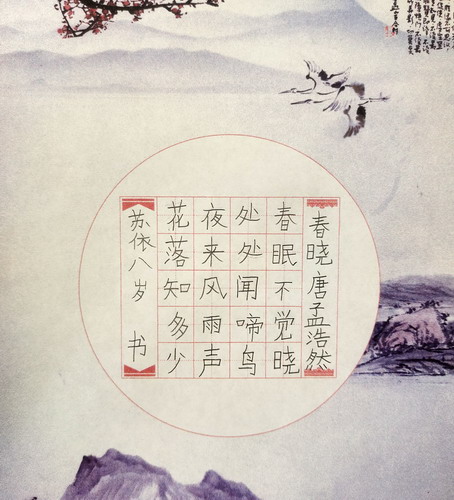 春晓唐孟浩然
春眠不觉晓
处处闻啼鸟
夜来风雨声
花落知多少
苏依八岁 书